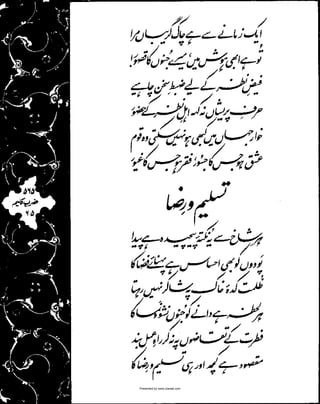 ایک زمانے سے ہے چاک گریباں مرا
تو ہے ابھی ہوش میں، میرے جنوں کا قصور!
فیضِ نظر کے لیے ضبطِ سخن چاہیے
حرفِ پریشاں نہ کہہ اہلِ نظر کے حضور
خوار جہاں میں کبھی ہو نہیں سکتی وہ قوم
عشق ہو جس کا جسور، فقر ہو جس کا غیور
تسلیم و رضا
ہر شاخ سے یہ نکتۂ پیچیدہ ہے پیدا
پودوں کو بھی احساس ہے پہنائے فضا کا
ظلمت کدۂ خاک پہ شاکر نہیں رہتا
ہر لحظہ ہے دانے کو جنوں نشوونما کا
فطرت کے تقاضوں پہ نہ کر راہِ عمل بند
مقصود ہے کچھ اور ہی تسلیم و رضا کا
ضربِ کلیم
Presented by www.ziaraat.com